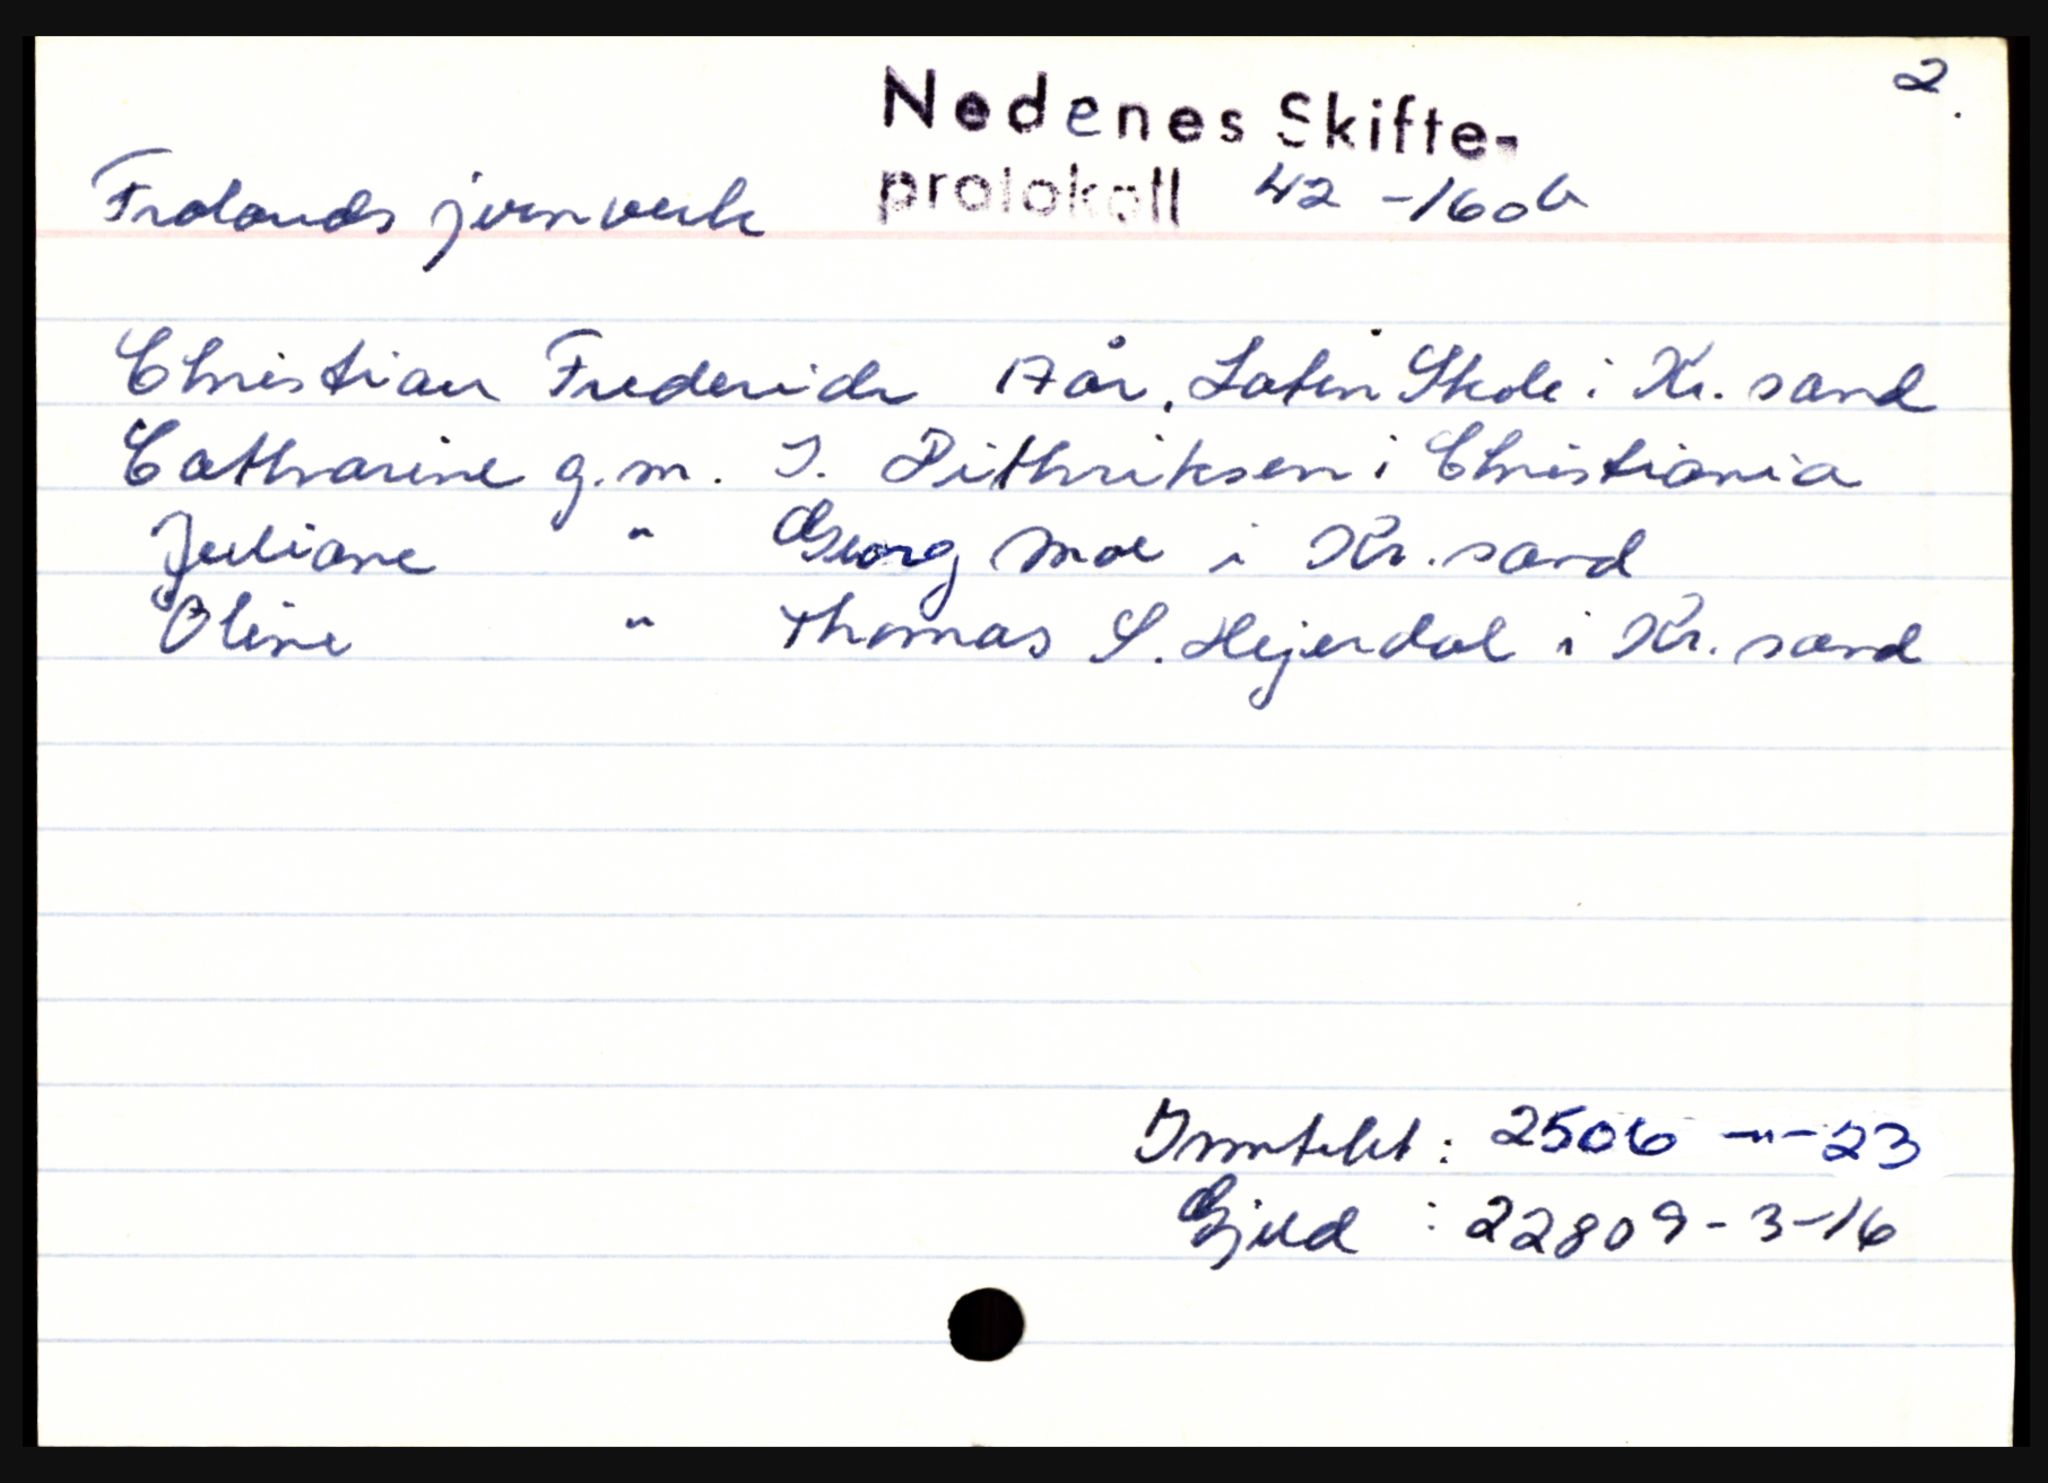 2.
Nedenes Skifte-
protokoll 42 - 160b
Frolands jernverk
Christian Frederich 17 år, Latin Skole i Kr. sand
Catharine g. m. J. Dithriksen i Christiania
Juliane " Georg Moe i Kr. sand
Oline " Thomas S. Hejerdal i Kr. sand
Inntekt : 2506 -"- 23
Gjeld : 22809 - 3 - 16